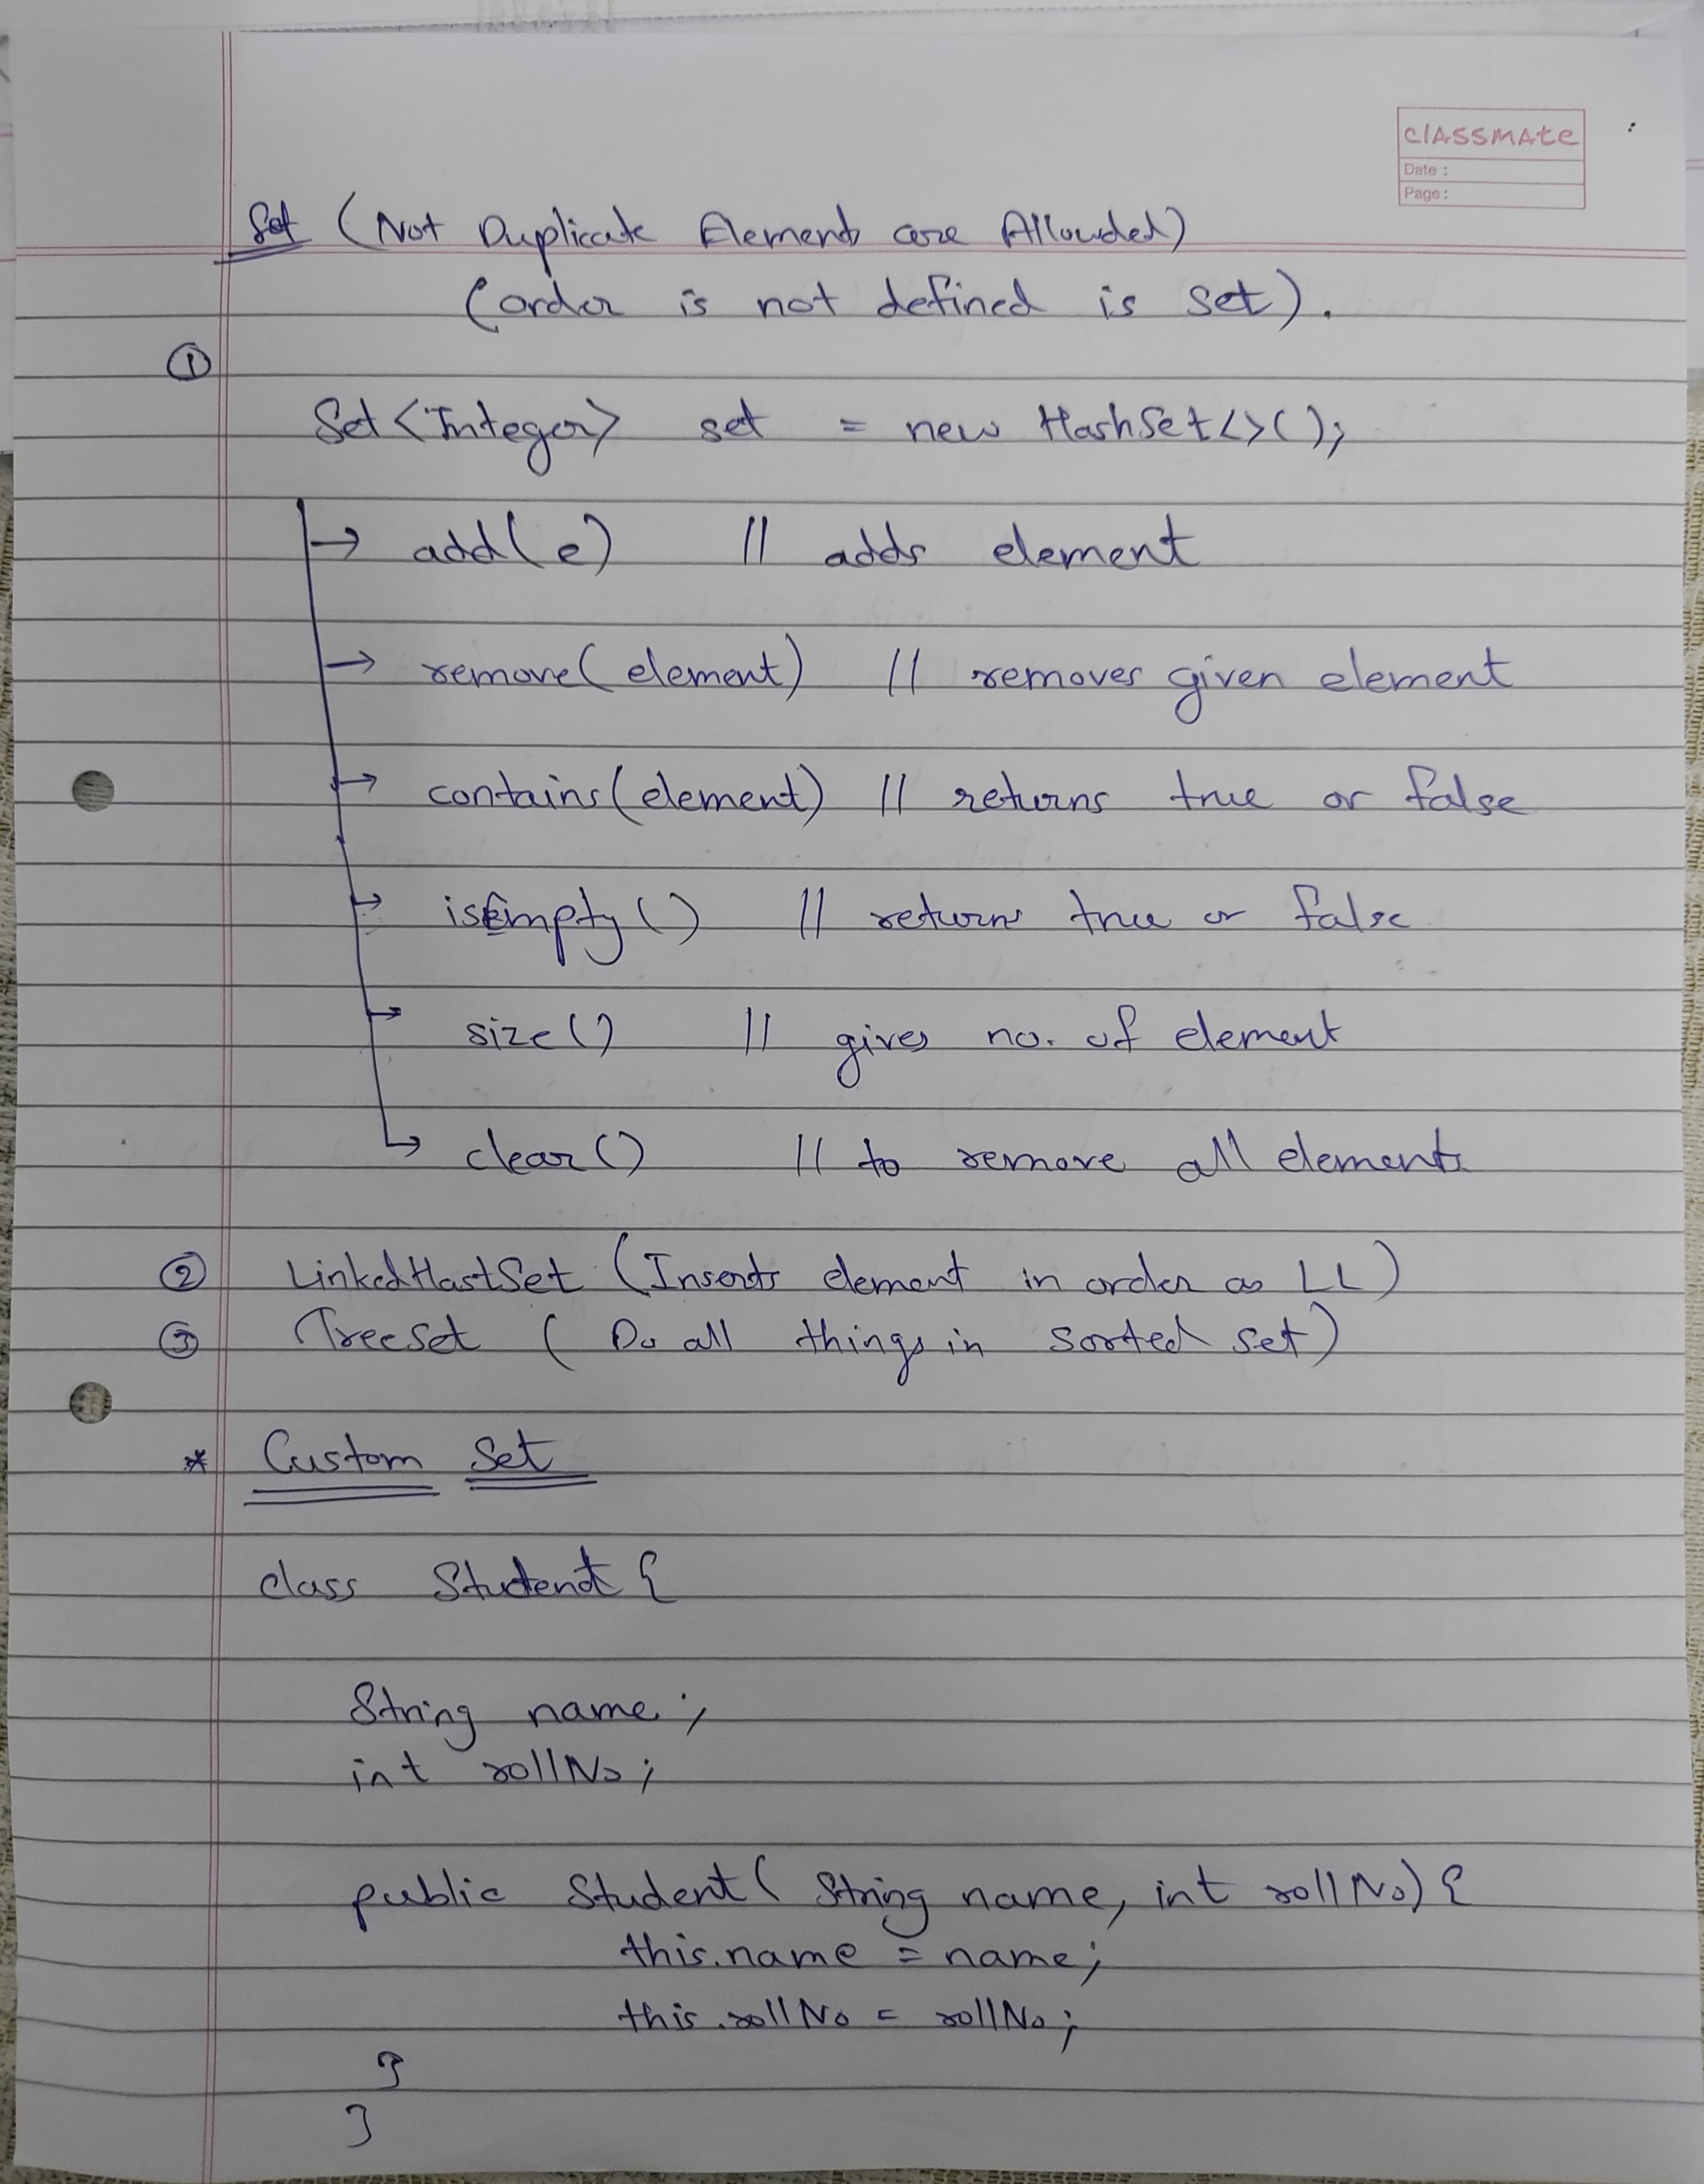 classmate
Date :
Page :
Set (Not Duplicate Elements are Allowded)
(order is not defined is set).
①
Set<Integer> set = new HashSet<>();
→ add(e) // adds element
→ remove(element) // removes given element
→ contains(element) // returns true or false
→ isEmpty() // returns true or false
→ size() // gives no. of element
↳ clear() // to remove all elements
② LinkedHastSet (Inserts element in order as LL)
③ TreeSet (Do all things in sorted set)
* Custom Set
class Student {
String name;
int rollNo;
public Student( String name, int rollNo) {
this.name = name;
this.rollNo = rollNo;
}
}